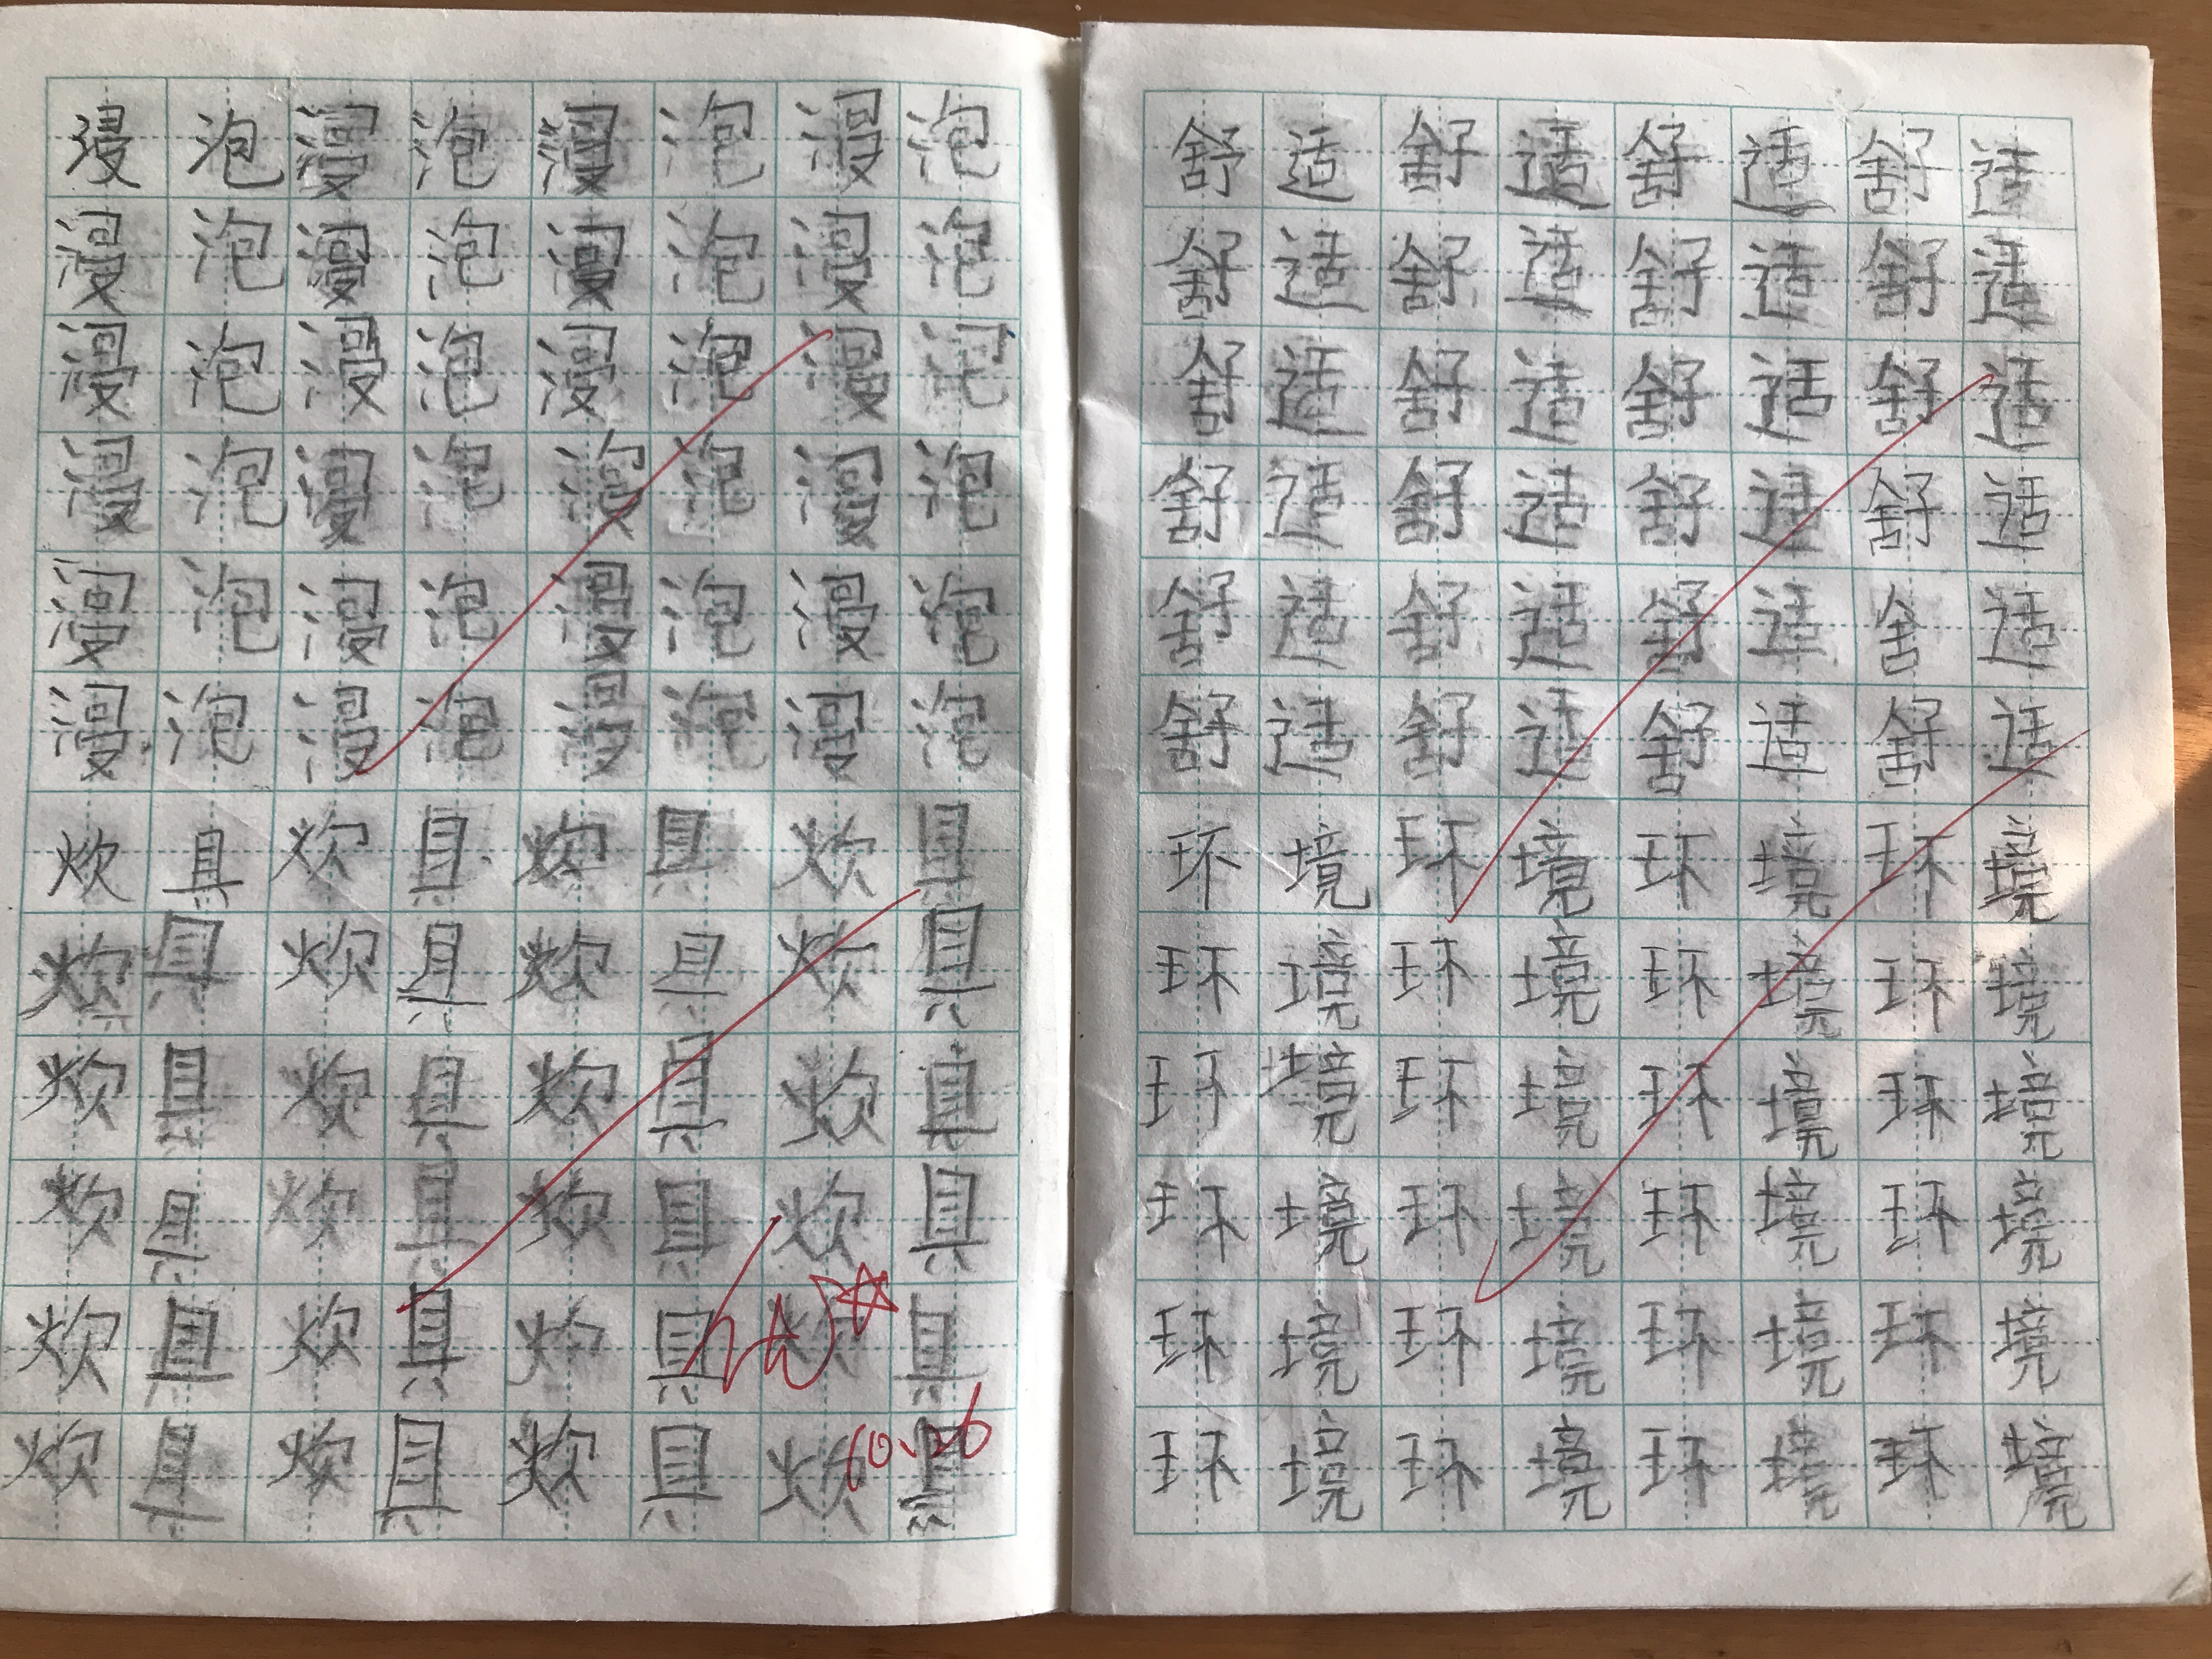 浸泡浸泡浸泡浸泡
浸泡浸泡浸泡浸泡
浸泡浸泡浸泡浸泡
浸泡浸泡浸泡浸泡
浸泡浸泡浸泡浸泡
浸泡浸泡浸泡浸泡
炊具炊具炊具炊具
炊具炊具炊具炊具
炊具炊具炊具炊具
炊具炊具炊具炊具
炊具炊具炊具炊具
炊具炊具炊具炊具
10.26
舒适舒适舒适舒适
舒适舒适舒适舒适
舒适舒适舒适舒适
舒适舒适舒适舒适
舒适舒适舒适舍适
舒适舒适舒适舒适
环境环境环境环境
环境环境环境环境
环境环境环境环境
环境环境环境环境
环境环境环境环境
环境环境环境环境